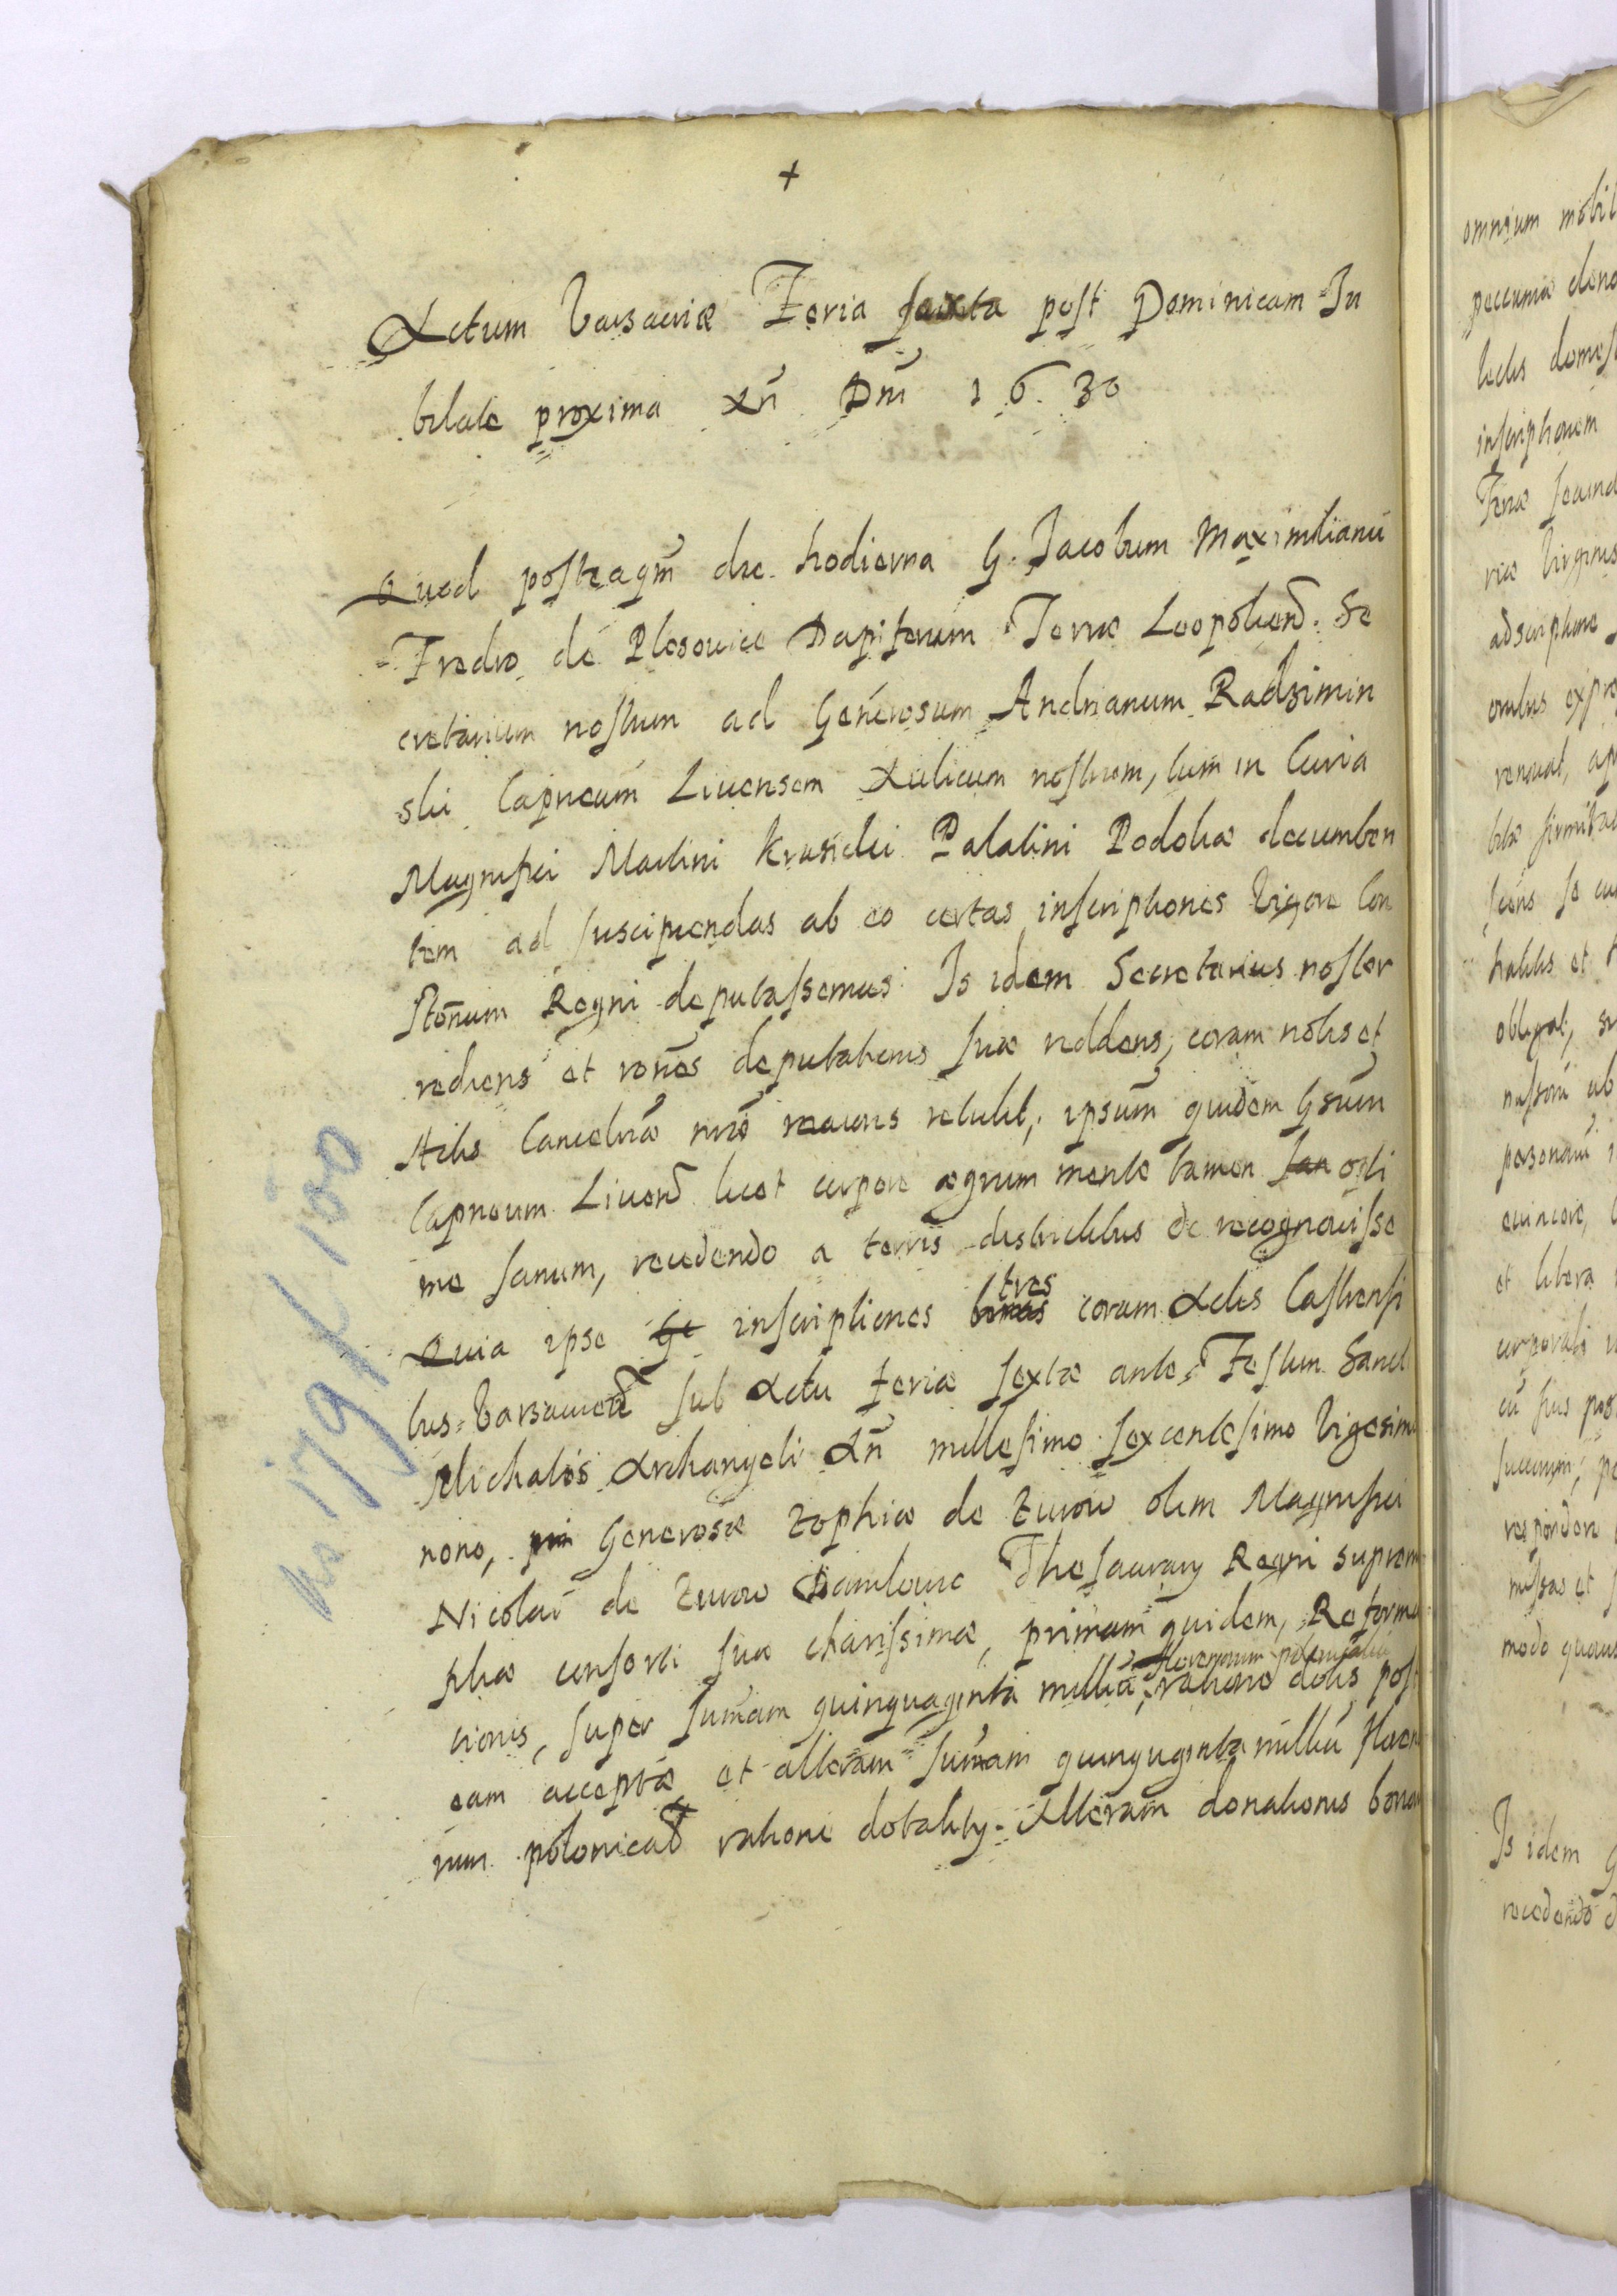 +
Actum Varsaviæ Feria sexta post Dominicam Iu
bilate proxima Añ Dnĩ 1630
Quod posteaqm̃ die hodierna G. Jacobum Maximilianũ
Fredro de Plesowice Dapiferum Terræ Leopolien̄. Se
cretarium nostrum ad Generosum Andrianum Radzimin
ski Capneum Liuensem Aulicum nostrum, tum in Curia
Magnifici Martini Krasicki Palatini Podoliæ decumben
tem ad suscipiendas ab eo certas inscriptiones vigore Con
stõnum Regni deputassemus. Is idem Secretarius noster
rediens et rõnes deputationis suæ reddens, coram nobis et
Actis Cancelriæ nr̃æ maioris retulit, ipsum quidem Gsum
Capneum Liuen̄ licet corpore ægrum mente tamen san opti
me sanum, recedendo a terris districtibus &c recognouisse
Quia ipse Ge inscriptiones binas tres coram Actis Castrensi
bus Varsauien̄ sub Actu feriæ sextæ ante Festum Sancti
Michaelis Archangeli Añ millesimo sexcentesimo vigesimo
nono, pri Generosæ Zophiæ de Zurow olim Magnifici
Nicolai de Zurow Danilowic Thesaurarij Regni supremi
filiæ consorti suæ charissimæ, primam quidem, Reforma
tionis, super sum̃am quinquaginta milliũ florenorum polonicaliũ ratione dotis post
eam acceptæ et alteram sum̃am quinquginta milliũ floren
rum polonical̄ ratione dotalitij. Alteram donationis bono
No 179 f 100
omnium mobil
pecuniæ
domes
inscriptionem
Feriæ secund
riæ Virginis
et libera
corporali
respondere
missas et
modo quouis
Is idem G
recedendo d